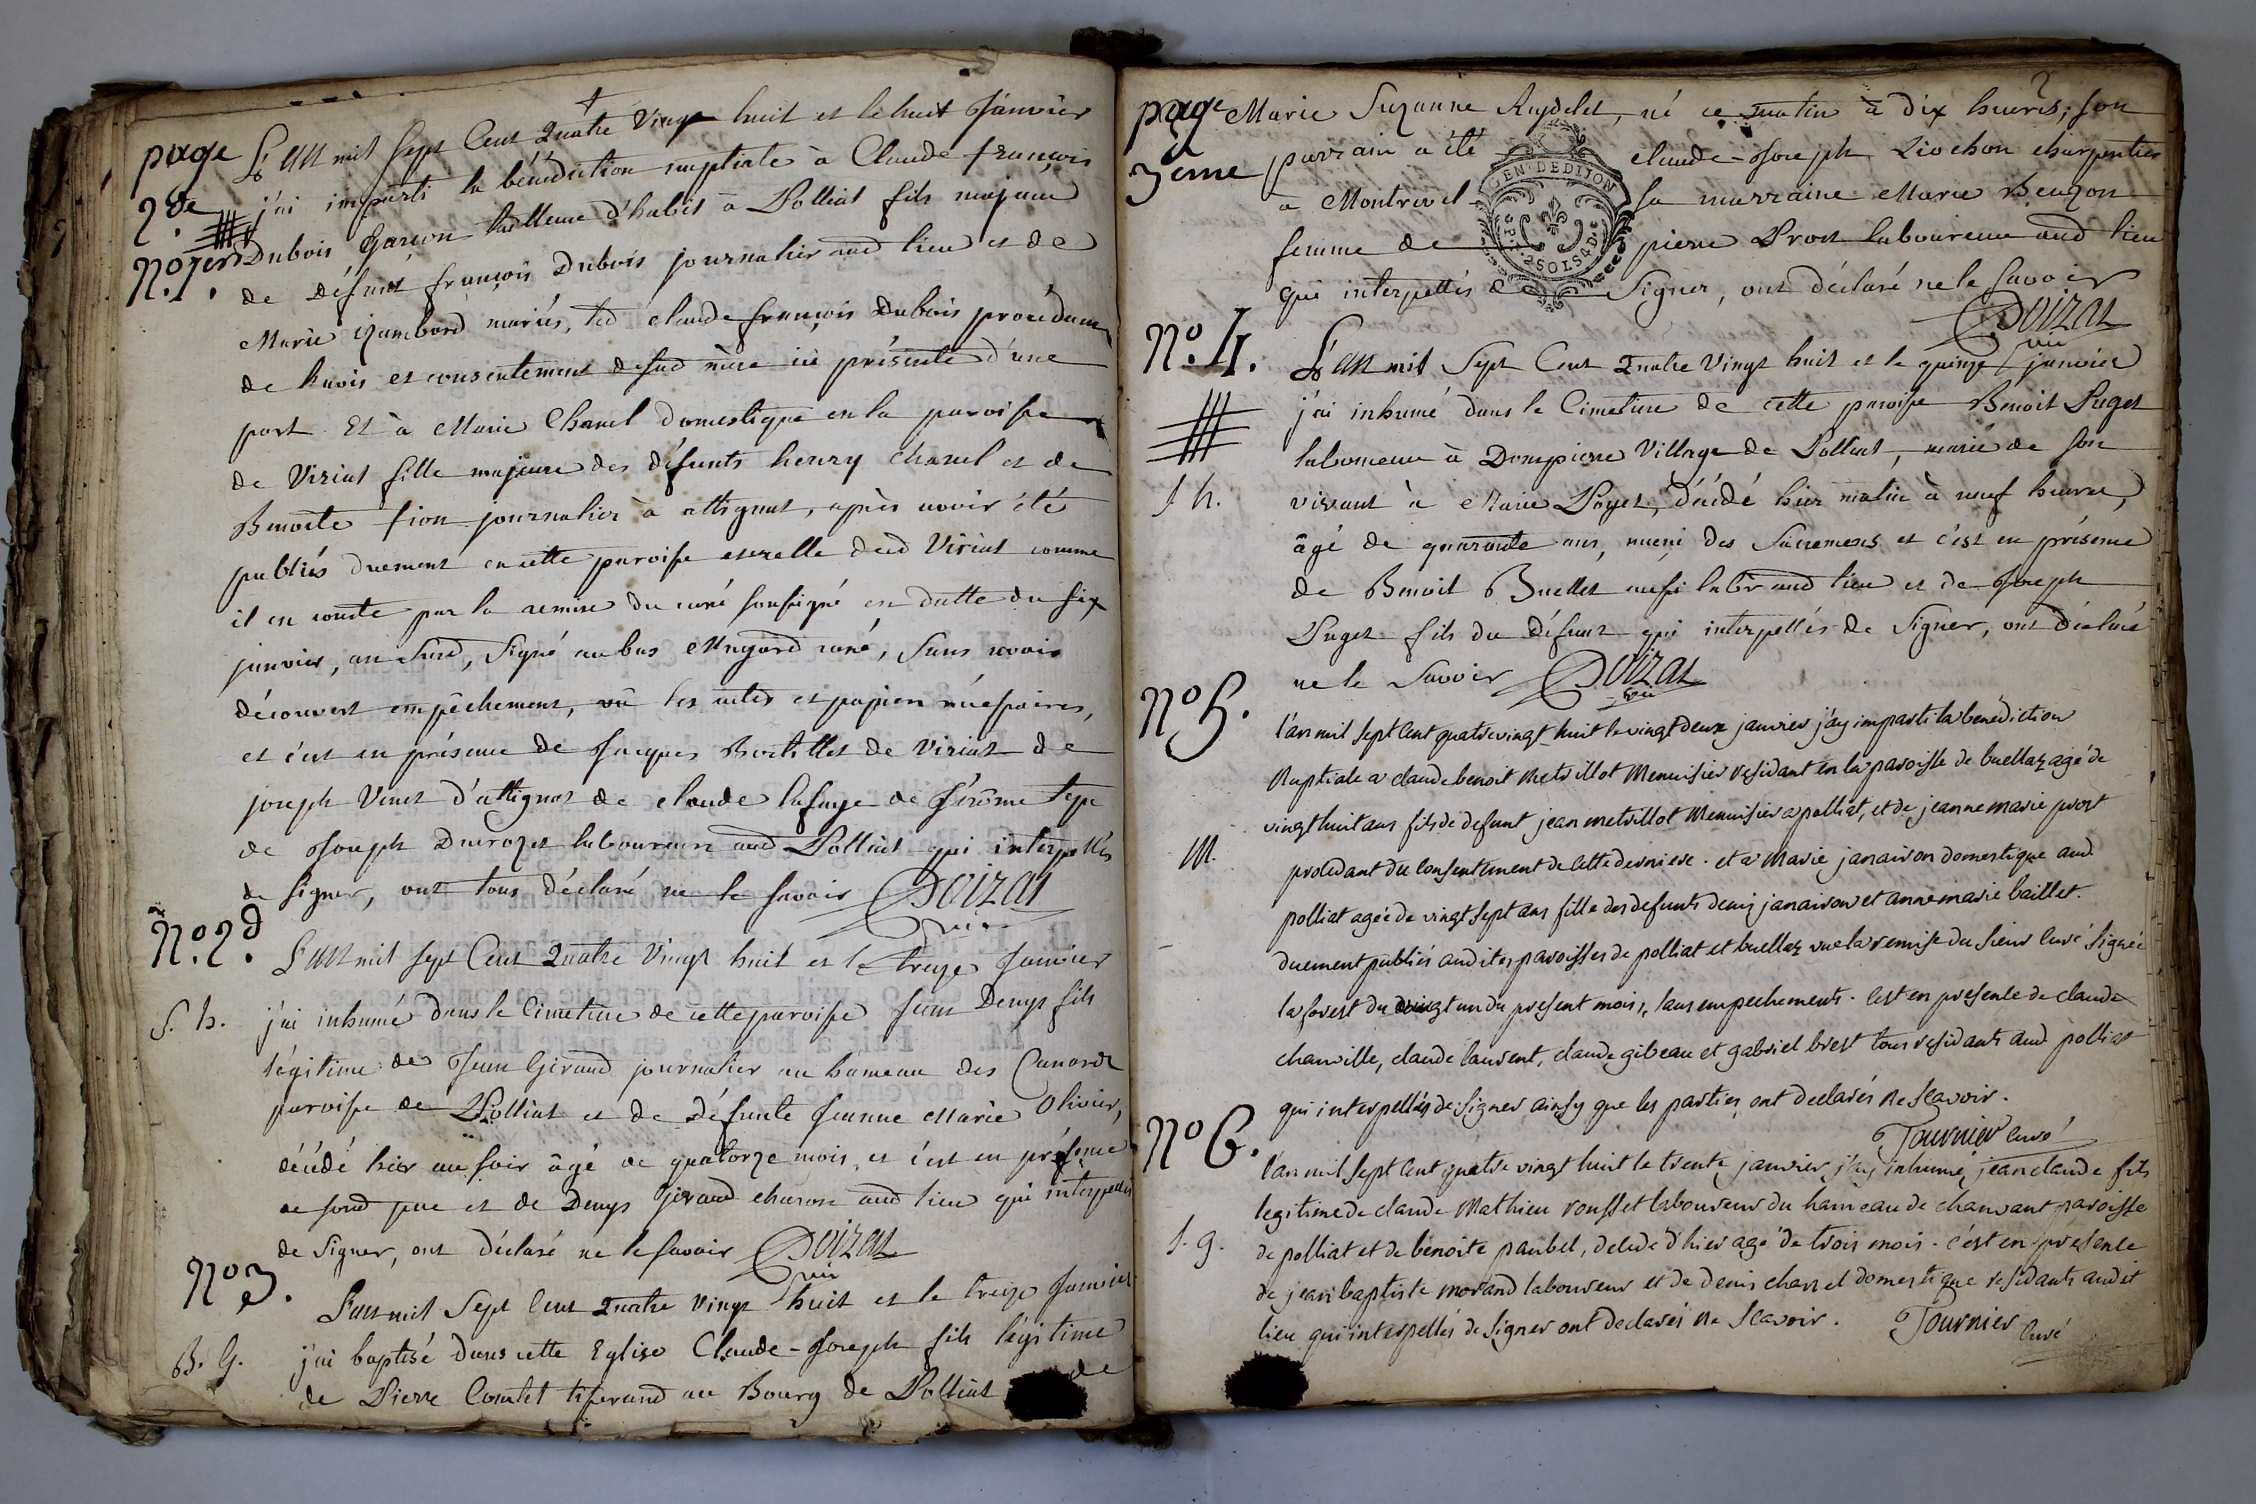 page
2.de
L'an mil sept Cent Quatre Vingt huit et le huit Janvier
j'ai imparti la bénédiction nuptiale à Claude françois
No.1er.
Dubois Garçon tailleur d'habit à Polliat fils majeur
de défunt françois Dubois journalier aud lieu et de
Marie mariés, led claude françois Dubois procédant
de l'avis et consentement de sad mère ici présente d'une
part Et à Marie Chanel domestique en la paroisse
de Viriat fille majeure des défunts henry Chanel et de
Benoite fion journalier à attignat, après avoir été
publiés duement en cette paroisse et celle dud Viriat comme
il en conste par la remise du curé soussigné en datte du six
janvier, an susd, signé au bas curé, sans avoir
découvert empêchement, vû les actes et papiers nécessaires,
et c'est en présence de Jacques de Viriat de
joseph d'attignat de claude de Jérôme
de Joseph laboureurs aud Polliat qui interpellés
de signer, ont tous déclaré ne le savoir Doizat
No.2d.
L'an mil sept Cent Quatre Vingt huit et le treize Janvier
S. h.
j'ai inhumé dans le Cimetiere de cette paroisse Jean Denys fils
légitime de Jean Giraud journalier au hameau des Canards
paroisse de Polliat et de défunte Jeanne Marie Olivier,
décédé hier au soir âgé de quatorze mois, et c'est en présence
de sond pere et de Denys Giraud charon aud lieu qui interpellés
de signer, ont déclaré ne le savoir Doizat
No 3.
L'an mil Sept Cent Quatre Vingt huit et le treize Janvier
B. G.
j'ai baptisé dans cette Eglise Claude-Joseph fils légitime
de Pierre tisserand au Bourg de Polliat de
page
3eme
2
Marie Suzanne Ruydelet, né ce matin à dix heures; son
parrain a été claude-Joseph charpentier
à Montrevel sa marraine Marie
femme de pierre Prost laboureur aud lieu
qui interpellés de Signer, ont déclaré ne le savoir
Doizat
GEN. DE DIJON
2 SOLS 4 D.
No.4.
L'an mil Sept Cent Quatre Vingt huit et le quinze janvier
j'ai inhumé dans le Cimetiere de cette paroisse Benoit Puget
laboureur à Dompierre Village de Polliat, marié de son
S. h.
vivant à Marie décédé hier matin à neuf heures,
âgé de quarante ans, muni des Sacremens et c'est en présence
de Benoit Buellet aussi labr aud lieu et de Joseph
Puget fils du défunt qui interpellés de Signer, ont déclaré
ne le Savoir Doizat
No 5.
l'an mil sept cent quatrevingt huit le vingt deux janvier j'ay imparti la benediction
Nuptiale a claude benoit metrillot Menuisier residant en la paroisse de buellaz agé de
vingt huit ans fils de defunt jean metrillot Menuisier a polliat, et de jeanne marie prost
M.
procedant du consentement de cette derniere. et a Marie janaivon domestique aud
polliat agée de vingt sept ans fille des defunts denis janaivon et anne marie baillet.
duement publiés auxdites paroisses de polliat et buellaz vue la remise du sieur curé signée
la forest du vingt un du present mois, sans empechements. c'est en presence de claude
chanville, claude laurent, claude gibeau et gabriel brest tous residants aud polliat
qui interpellés de signer ainsy que les parties ont declarés ne scavoir.
Tournier curé
No 6.
l'an mil sept cent quatre vingt huit le trente janvier j'ay inhumé jean claude fils
legitime de claude Mathieu rousset laboureur du hameau de chanvant paroisse
S. g.
de polliat et de benoite paubel, decedé d'hier agé de trois mois. c'est en presence
de jean baptiste morand laboureur et de denis chanel domestique residants audit
lieu qui interpellés de signer ont declarés ne scavoir. Tournier curé